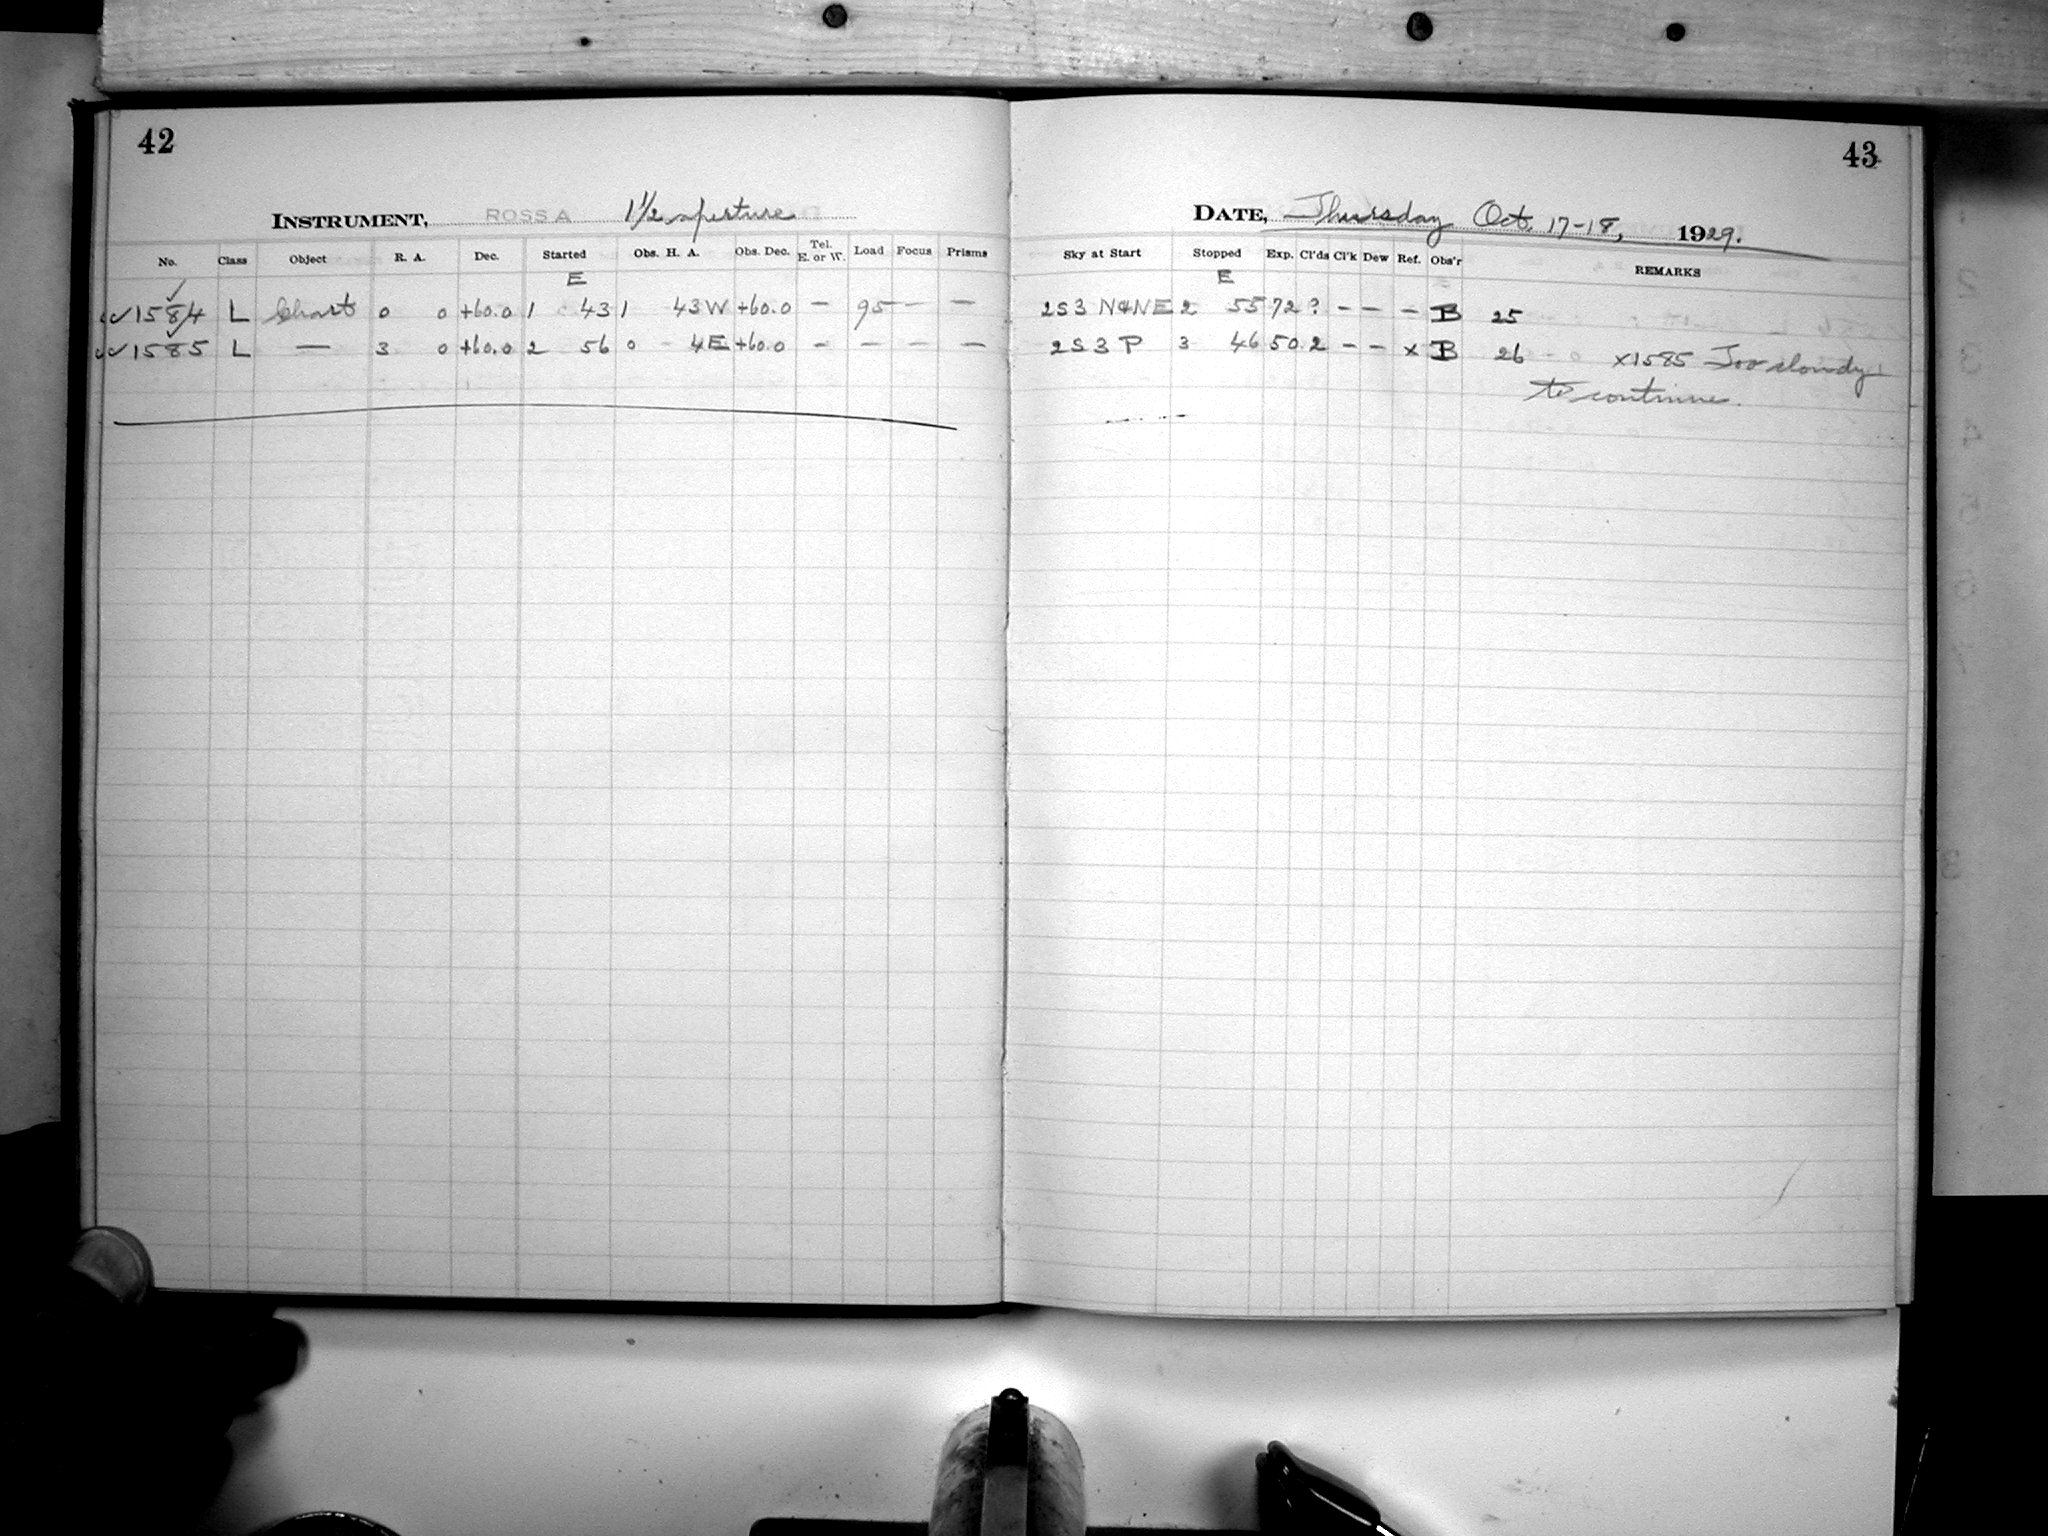 42
INSTRUMENT, ROSS A 1 1/2 aperture
No. Class Object R. A. Dec. Started Obs. H. A. Obs. Dec. Tel. E. or W. Load Focus Prisms
E
✓✓1584 L Chart 0 0 +60.0 1 43 1 43W +60.0 – 95 – –
✓✓1585 L — 3 0 +60.0 2 56 0 4E +60.0 – – – –
43
DATE, Thursday Oct. 17-18, 1929.
Sky at Start Stopped Exp. Cl'ds Cl'k Dew Ref. Obs'r REMARKS
E
2S3 N&NE 2 55 72 ? – – – B 25
2S3 P 3 46 50 2 – – x B 26 x1585 Too cloudy
to continue.